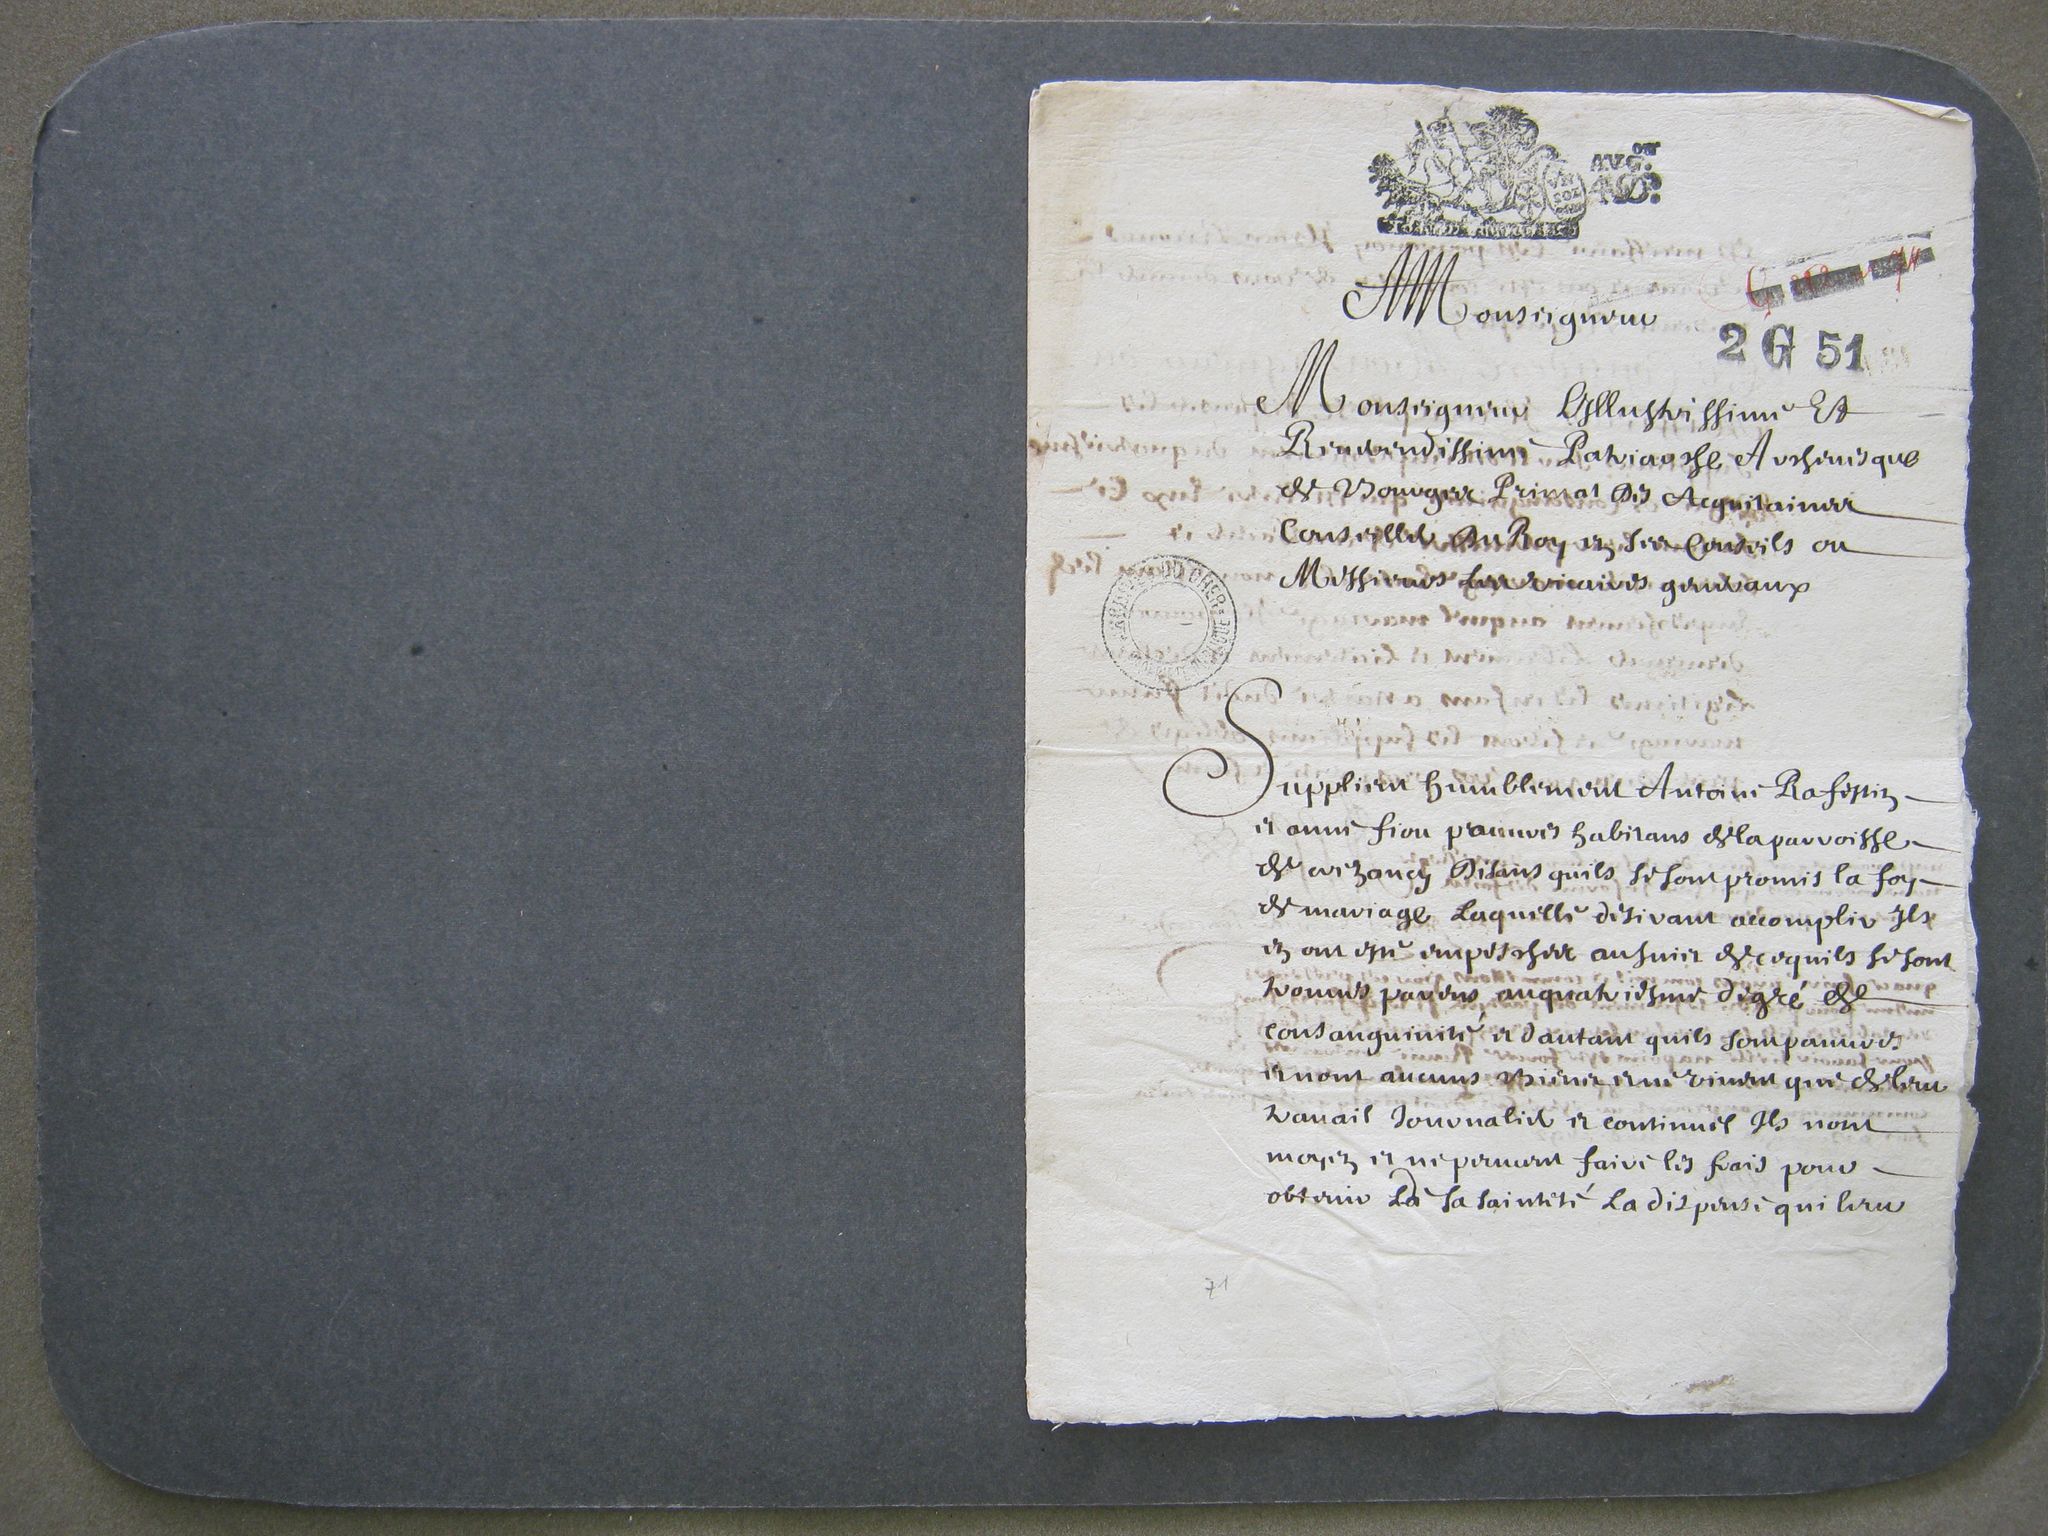 AVG.on
VN SOL
A Monseigneur
2 G 51
Monseigneur Lillustrissime Et
Reuerendissime Patriarche Archeuesque
de Bourges Primat des Acquitaines
Conseiller du Roy en ses Conseils ou
Messieurs Les vicaires generaux
ARCHIVES DU CHER
Supplient humblement Antoine Rafestin
et anne fiou pauures habitans de la parroisse
de vezancy disans quils se sont promis la foy
de mariage Laquelle desirant accomplir Ils
en ont esté empeschez au suiet de ce quils se sont
trouues parens au quatriesme degré de
consanguinité et dautant quils sont pauures
et nont aucuns Biens et ne viuent que de leur
trauail Journalier et continuel Ils nont
moyen et ne peuuent faire les frais pour
obtenir De sa sainteté La dispense qui leur
71